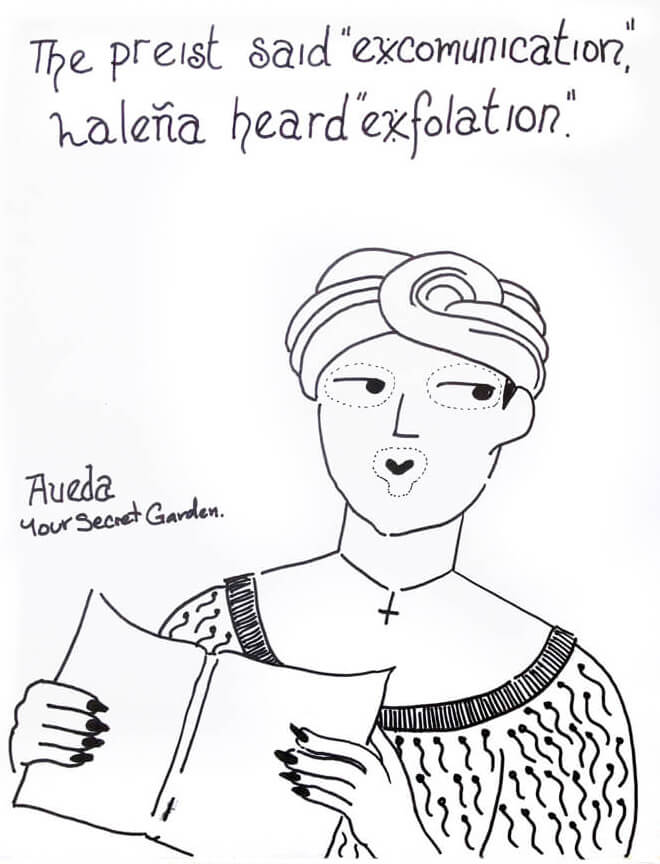 The preist said "excomunication,"
Laleña heard "exfolation."
Aueda
Your Secret Garden.